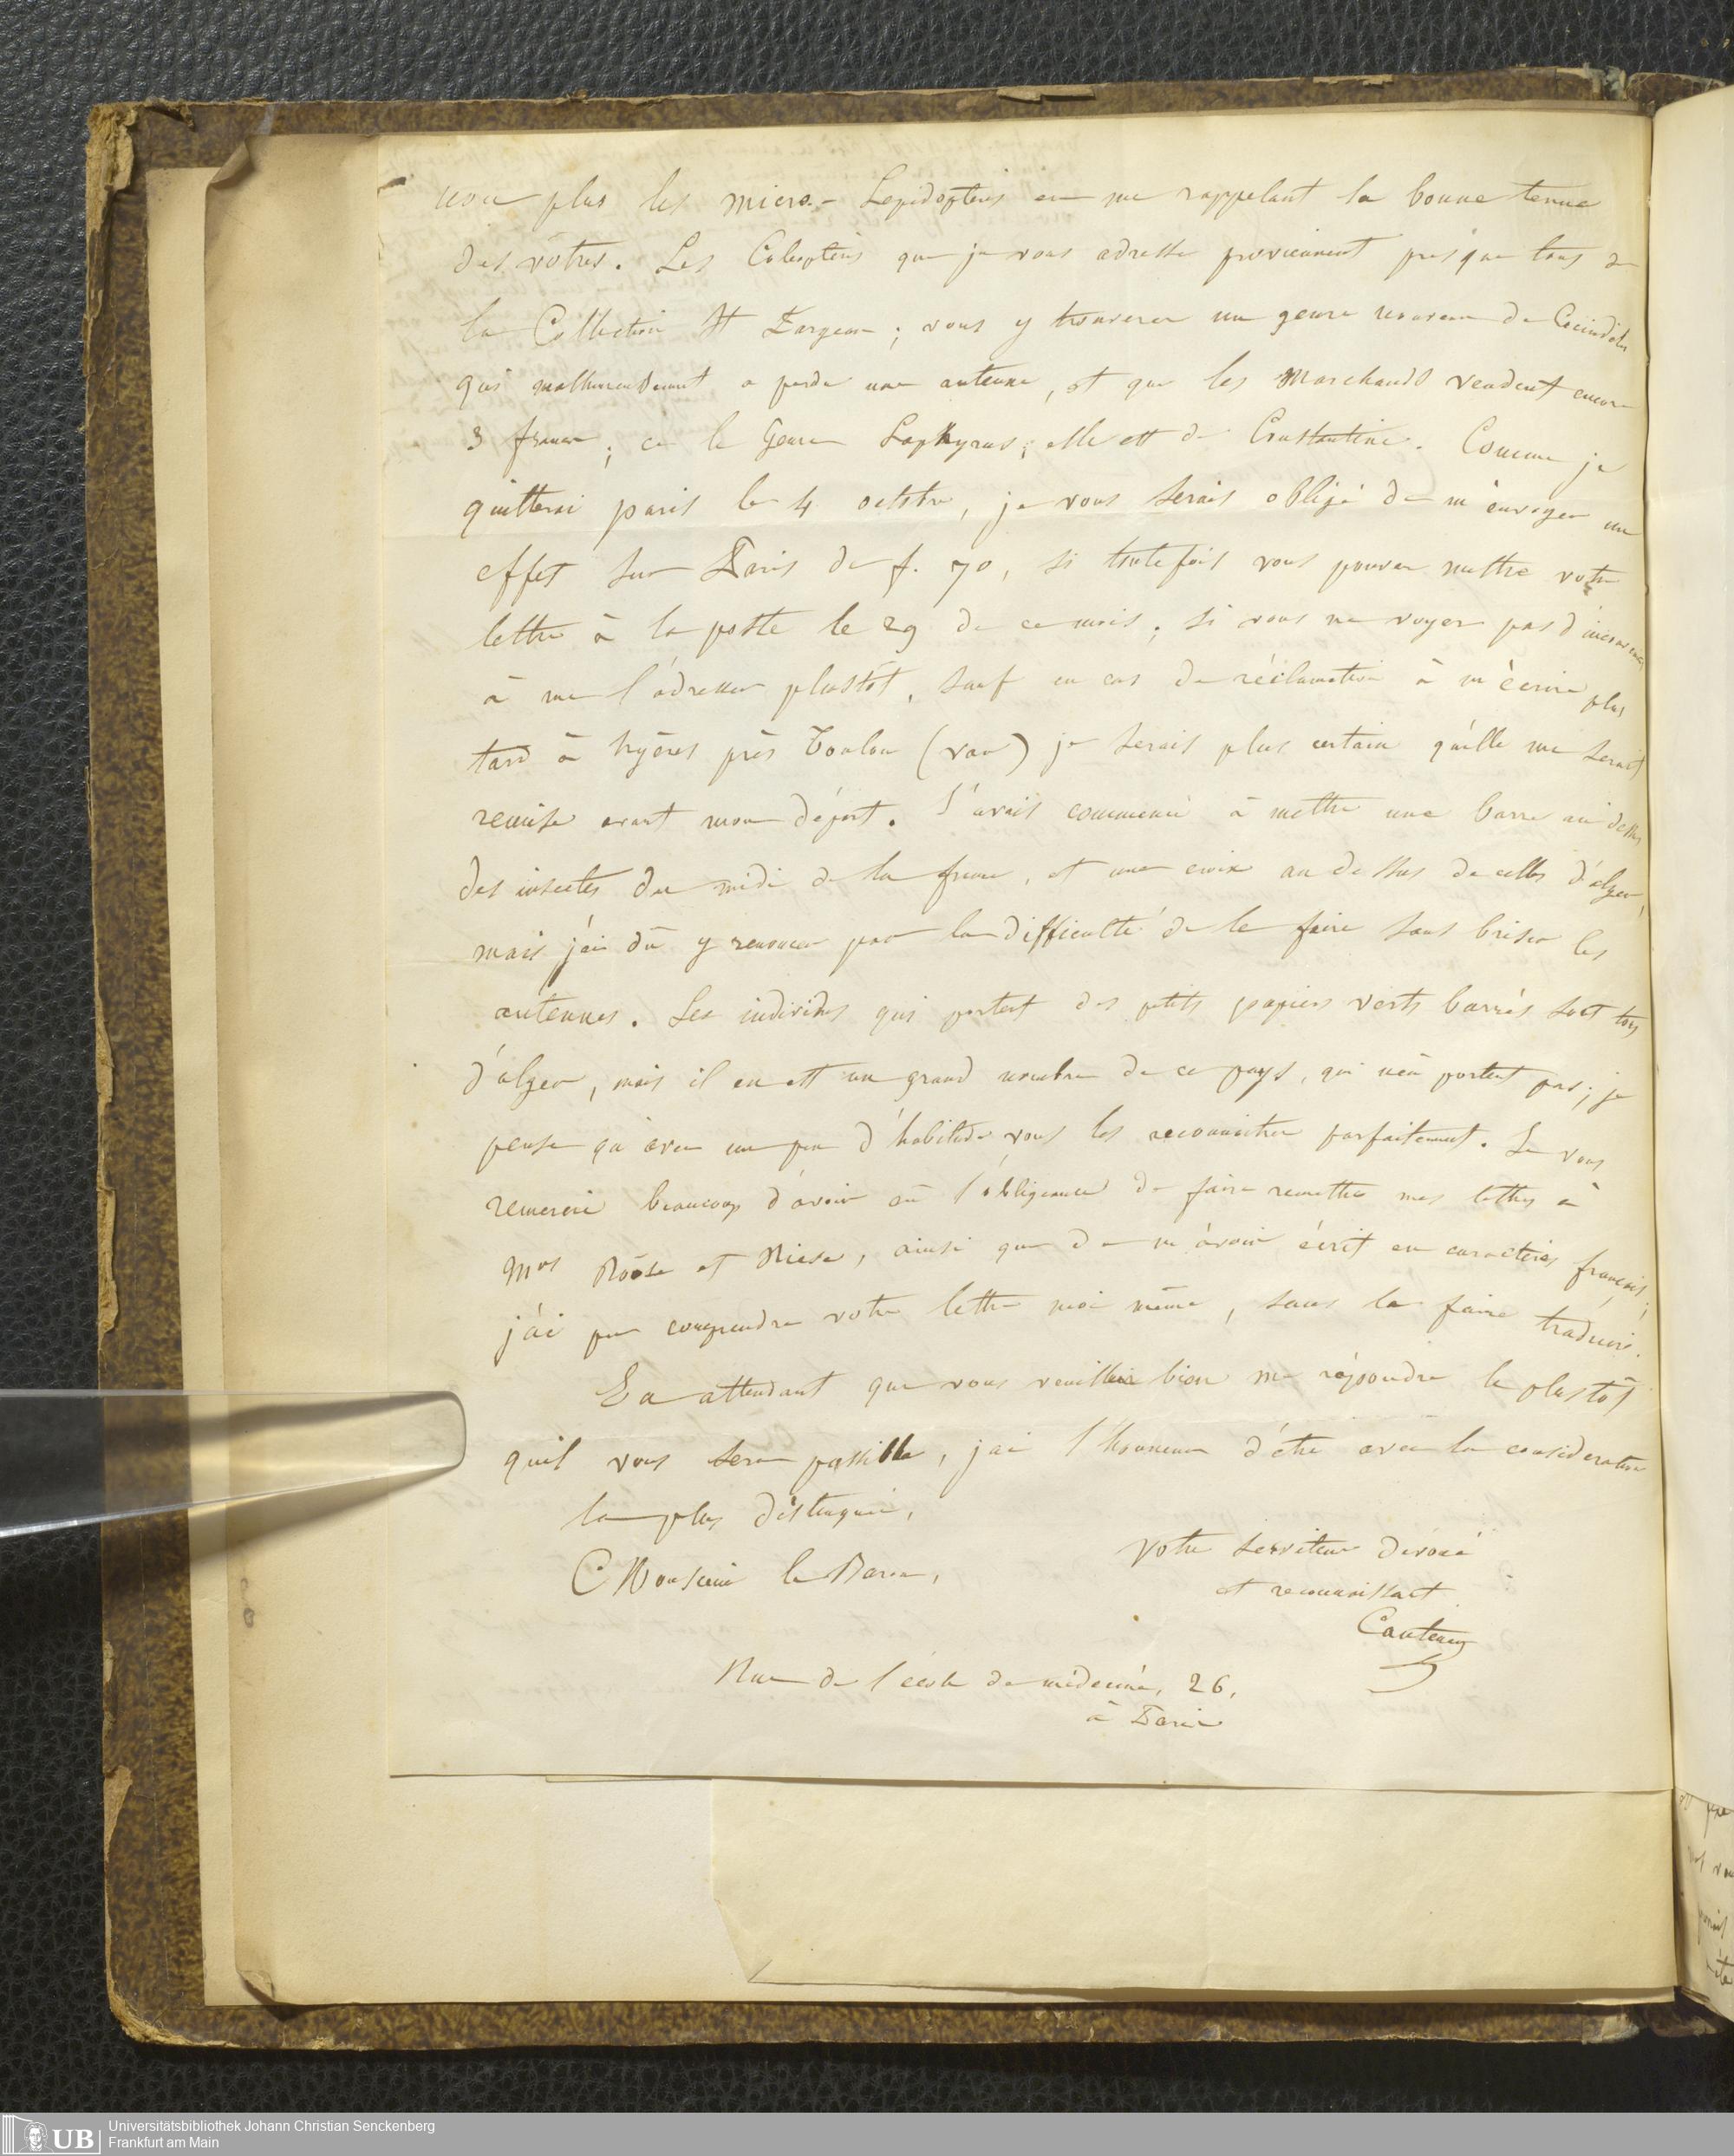 non plus les micro-Lepidoptères en me rappelant la bonne tenue
des vôtres. Les Coleoptères que je vous adresse proviennent presque tous de
la Collection ; vous y trouverez un genre nouveau de Cicindèle
qui malheureusement a perdu une antenne, et que les Marchands vendent encore
3 francs; ce le Genre Laphyrus; elle est de Constantine. Comme je
quitterai paris le 4 octobre, je vous serais obligé de m'envoyer un
effet sur Paris de f. 70, si toutefois vous pouvez mettre votre
lettre à la poste le 29 de ce mois; si vous ne voyez pas d'
à me l'adresser plustôt, sauf en cas de réclamation à m'écrire plus
tard à hyères près Toulon (var) je serais plus certain qu'elle me serait
remise avant mon départ. J'avais commencé à mettre une barre au dessus
des insectes du midi de la france, et une croix au dessus de celles d'alger,
mais j'ai dû y renoncer par la difficulté de le faire sans briser les
antennes. Les individus qui portent des petits papiers verts barrés sont tous
d'alger, mais il en est un grand nombre de ce pays, qui n'en portent pas; je
pense qu'avec un peu d'habitude vous les reconnaitrez parfaitement. Je vous
remercie beaucoup d'avoir eû l'obligeance de faire remettre mes lettres à
Mrs et Riese, ainsi que de m'avoir écrit en caractères français;
j'ai pu comprendre votre lettre moi même, sans la faire traduire.
En attendant que vous veuillez bien me répondre le plustôt
quil vous sera possible, jai l'honneur d'être avec la consideration
la plus distinguée,
Monsieur le Baron,
Votre serviteur dévoué
et reconnaissant
Cantener
Rue de l'école de médecine, 26,
à Paris
Universitätsbibliothek Johann Christian Senckenberg
Frankfurt am Main
UB